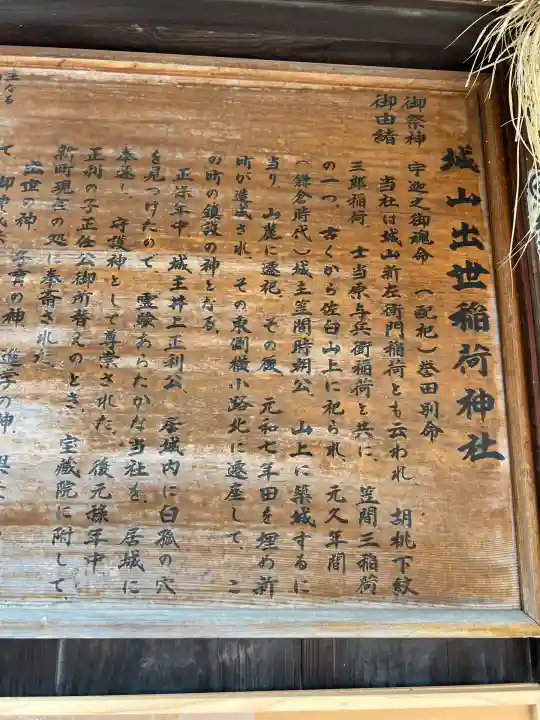 城山出世稲荷神社
御祭神　宇迦之御魂命（配祀）誉田別命
御由緒　当社は城山新左衛門稲荷とも云われ、胡桃下紋
三郎稲荷、士当原与兵衛稲荷と共に、笠間三稲荷
の一つ、古くから佐白山上に祀られ、元久年間
（鎌倉時代）城主笠間時朝公、山上に築城するに
当り、山麓に遷祀、その後、元和七年田を埋め新
町が造成され、その東側横小路北に遷座して、こ
の町の鎮護の神となる。
正保年中、城主井上正利公、居城内に白狐の穴
を見つけたので、霊験あらたかな当社を、居城に
奉遷し、守護神として尊崇された。後元禄年中
正利の子正任公御所替えのとき、宝蔵院に附して、
新町現在の処に奉斎された。
出世の神、子宝の神、進学の神、
て、御神徳
主なる